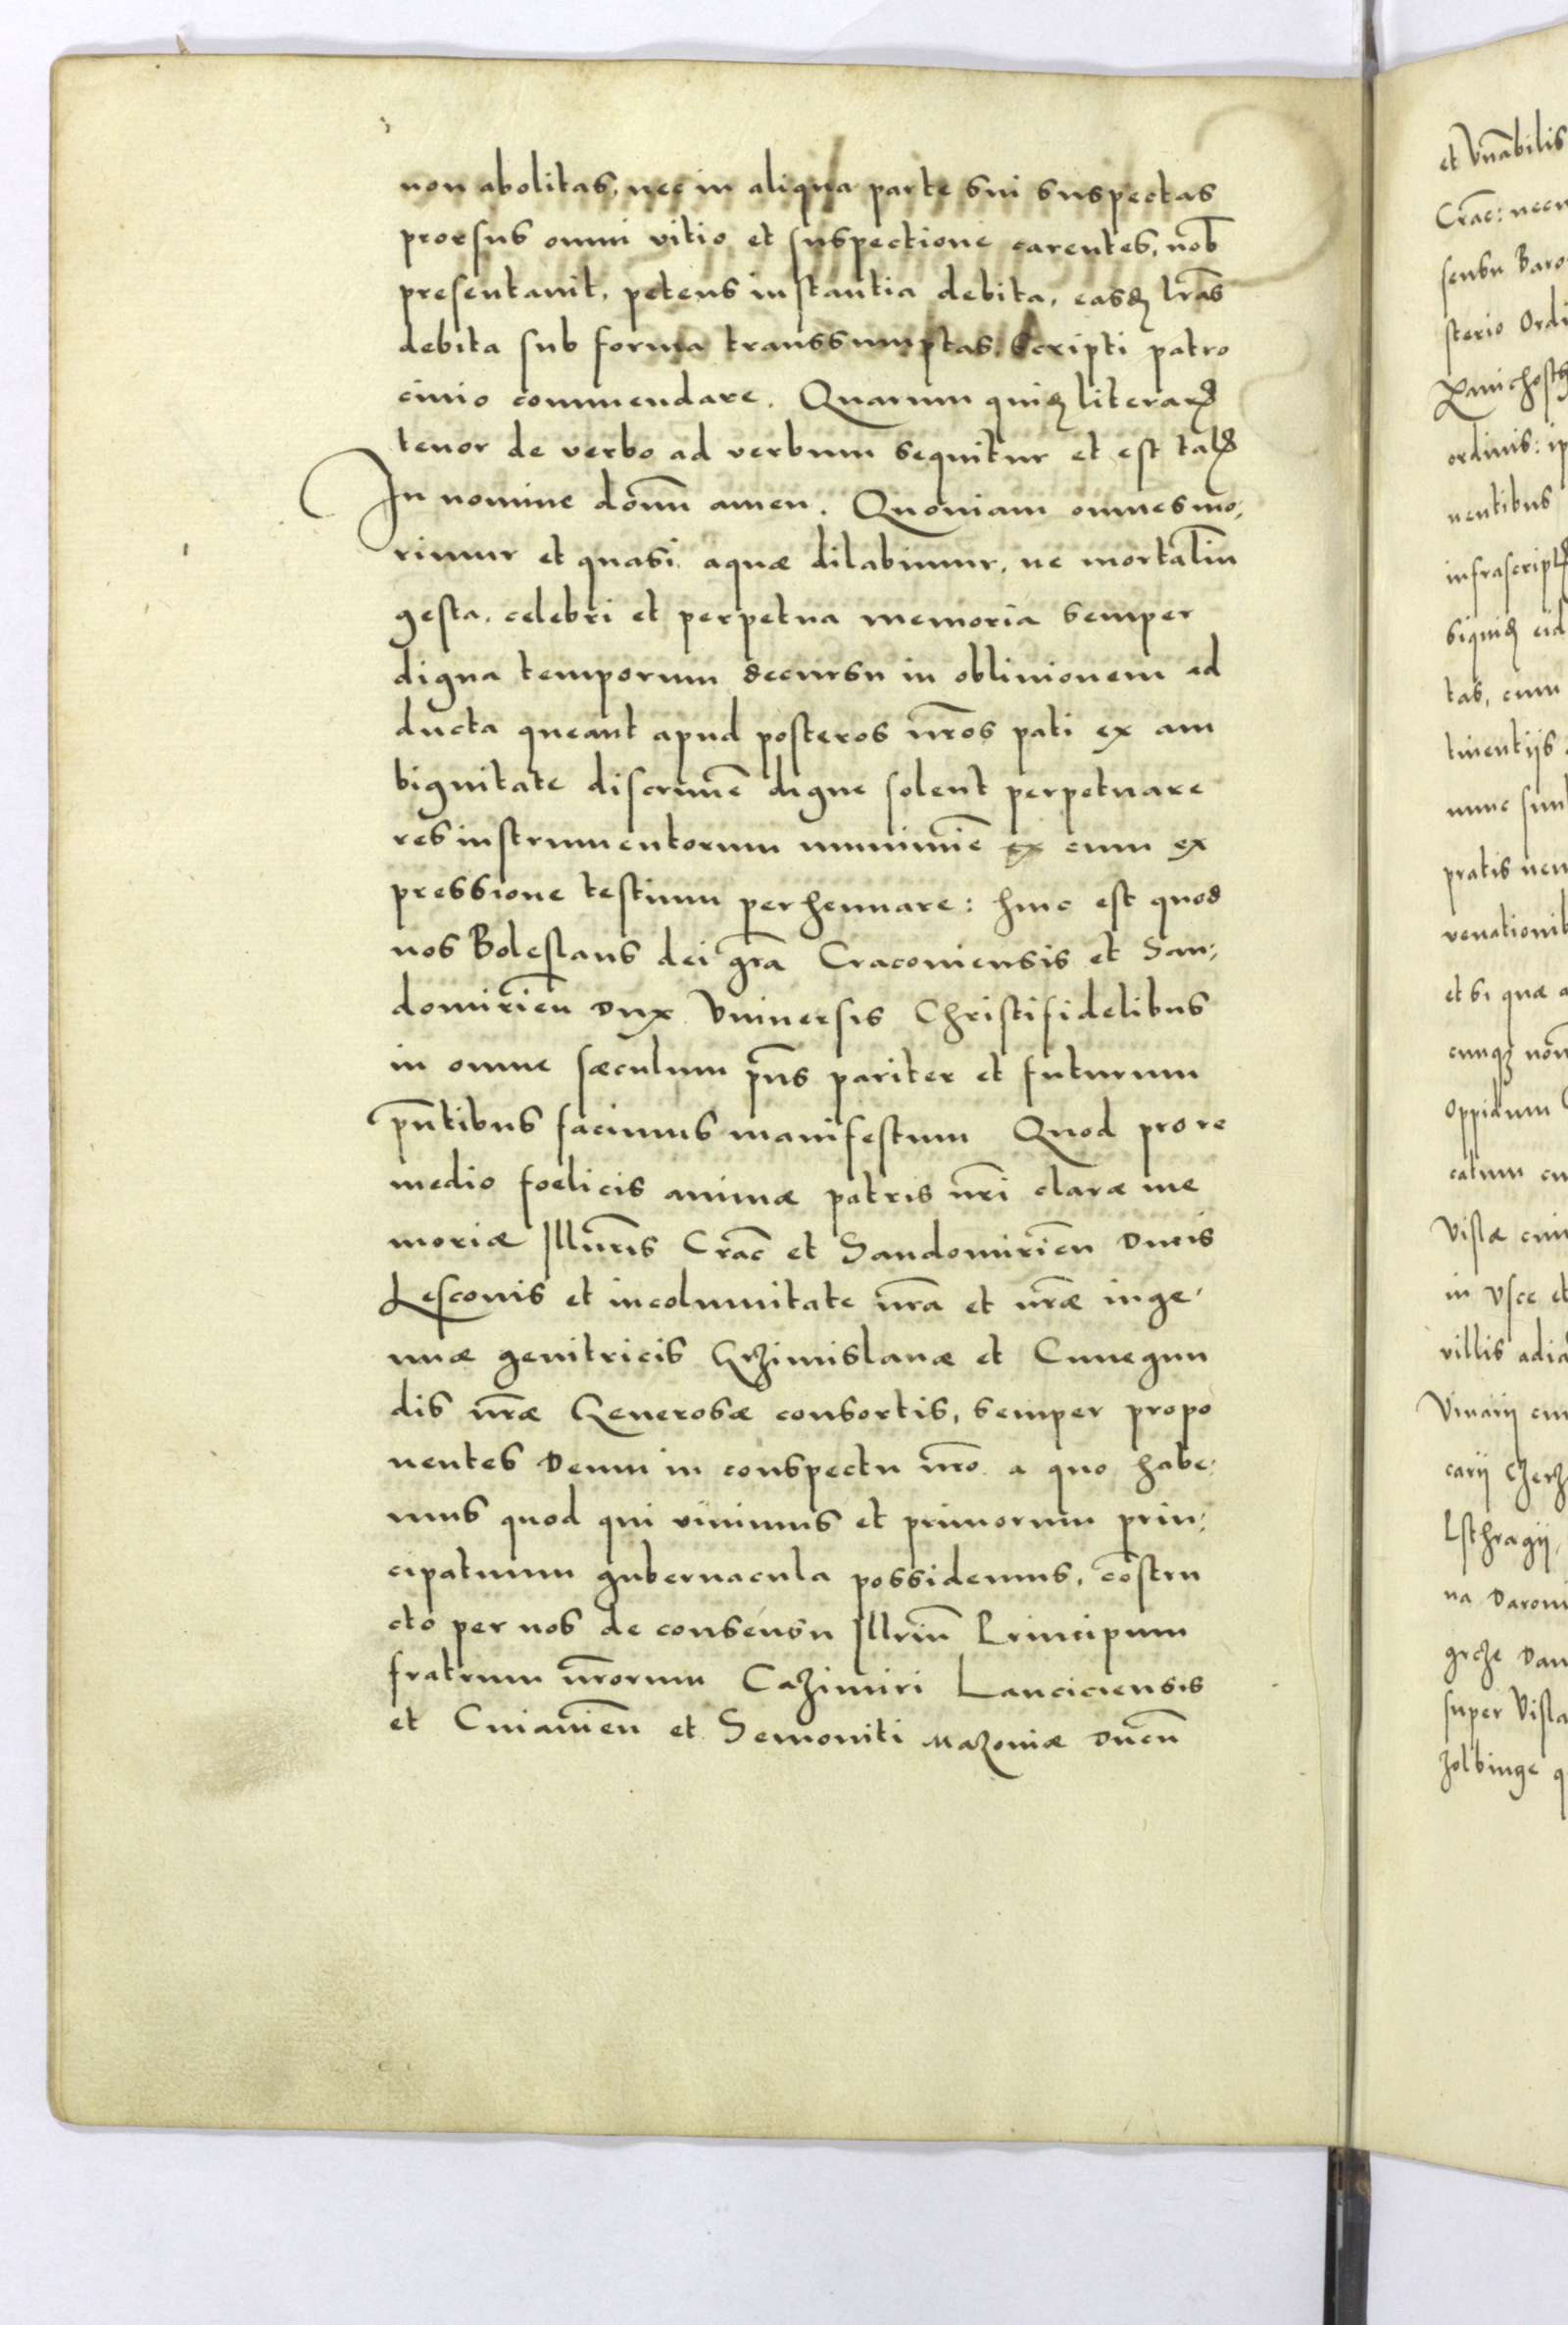 non abolitas, nec in aliqua parte sui suspectas
prorsus omni vitio et suspectione carentes, nob̄
presentauit, petens instantia debita, easdꝫ lr̄as
debita sub forma transsumptas, scripti patro
cinio commendare. Quarum quidꝫ literarꝝ
tenor de verbo ad verbum sequitur et est talꝭ
In nomine domī amen. Quoniam omnes mo,
rimur et quasi aquæ dilabimur, ne mortaliū
gesta, celebri et perpetua memoria semper
digna temporum decursu in obliuionem ad
ducta queant apud posteros nr̄os pati ex am
biguitate discrimē digne solent perpetuare
res instrumentorum munimīe ex cum ex
pressione testium perhennare: hinc est quod
nos Boleslaus dei gr̄a Cracouiensis et San,
domiriēn Dux Vniuersis Christifidelibus
in omne sæculum p̄ns pariter et futurum
p̄ntibus facimus manifestum Quod pro re
medio foelicis animæ patris nr̄i claræ me
moriæ Illur̄is Crac̄ et Sandomiriēn Ducis
Lesconis et incolumitate nr̄a et nr̄æ inge,
nuæ genitricis Grzimislauæ et Cunegun
dis nr̄æ Generosæ consortis, semper propo
nentes Deum in conspectu nr̄o a quo habe,
mus quod qui viuimus et primorum prin,
cipatuum gubernacula possidemus, cōstru
cto per nos de consensu Illriū Principum
fratrum nr̄orum Cazimiri Lanciciensis
et Cuiauiēn et Semouiti Mazouiæ Ducū
et Vnābilis
Crac̄: necn
sensu Baro
sterio Ordi
ordinis: ip
nentibus
infrascriptꝭ
siquidꝫ eid
tas, cum
tinentijs
nunc sunt
pratis nem
venationib
et si quæ a
cunqꝫ nom̄
Oppidum
catum cu
Vislæ cum
in Vsce et
villis adia
Viuarij cum
carij Czerz
Lsthragij,
na Daroni
grcze Dan
super Visla
zolbinge q